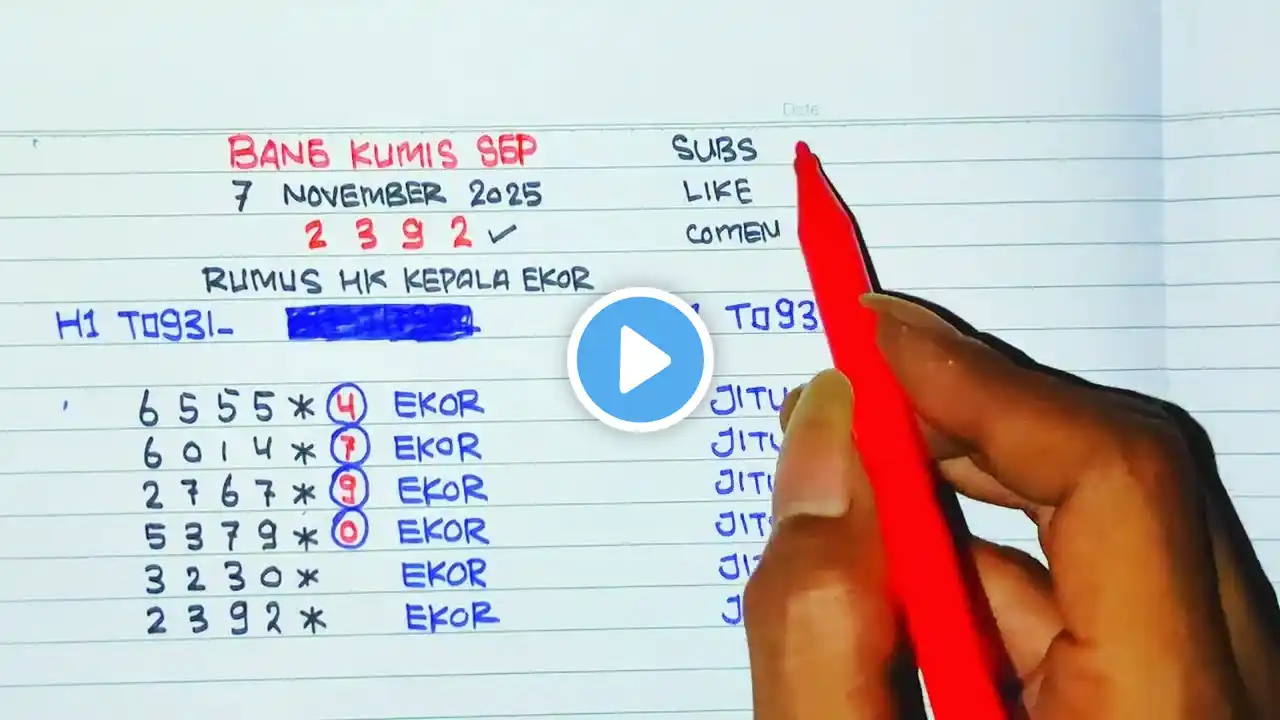 Date
BANG KUMIS SGP SUBS
7 NOVEMBER 2025 LIKE
2 3 9 2 ✓ COMEN
RUMUS HK KEPALA EKOR
H1 TO931- TO93
6 5 5 5 * 4 EKOR JITU
6 0 1 4 * 7 EKOR JITU
2 7 6 7 * 9 EKOR JITU
5 3 7 9 * 0 EKOR
3 2 3 0 * EKOR
2 3 9 2 * EKOR